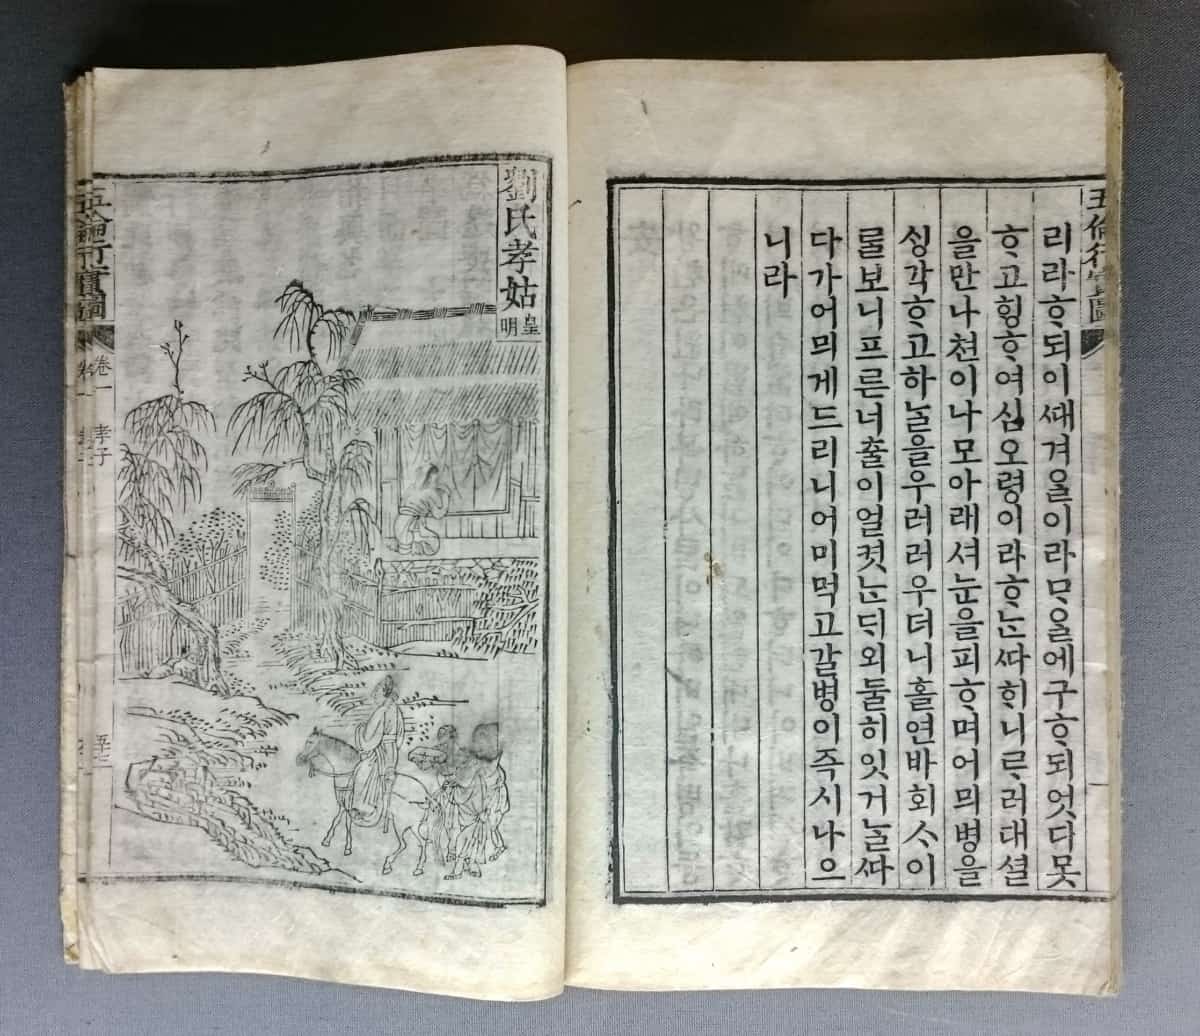 五倫行實圖
리라ᄒᆞ되이ᄯᅢ겨ᄋᆞᆯ이라ᄆᆞᄋᆞᆯ에구ᄒᆞ되엇디못
ᄒᆞ고ᄒᆡᆼᄒᆞ여십오령이라ᄒᆞᄂᆞᆫᄯᅡᄒᆡ니ᄅᆞ러대셜
을만나천이나모아래셔눈을피ᄒᆞ며어믜병을
ᄉᆡᆼ각ᄒᆞ고하ᄂᆞᆯ을우러러우더니홀연바회ᄉᆞ이
ᄅᆞᆯ보니프른너출이얼켯ᄂᆞᆫᄃᆡ외둘히잇거ᄂᆞᆯᄯᅡ
다가어믜게드리니어미먹고갈병이즉시나으
니라
劉氏孝姑 皇明
五倫行實圖 卷一 孝子